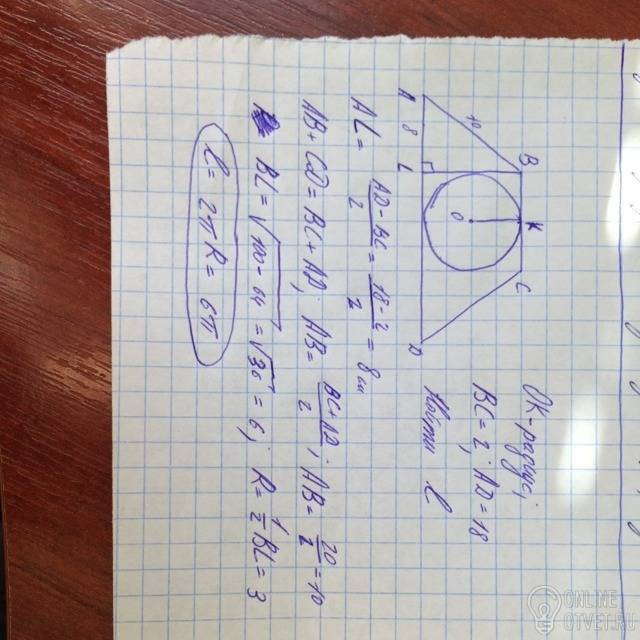 B K C
10
O
A 8 L D
OK-радиус;
BC=2; AD=18
Найти ℓ
AL = AD-BC/2 = 18-2/2 = 8 см
AB+CD=BC+AD; AB= BC+AD/2; AB= 20/2 =10
BL=√100-64 =√36 = 6; R= 1/2 BL=3
ℓ= 2πR= 6π
ONLINE
OTVET.RU